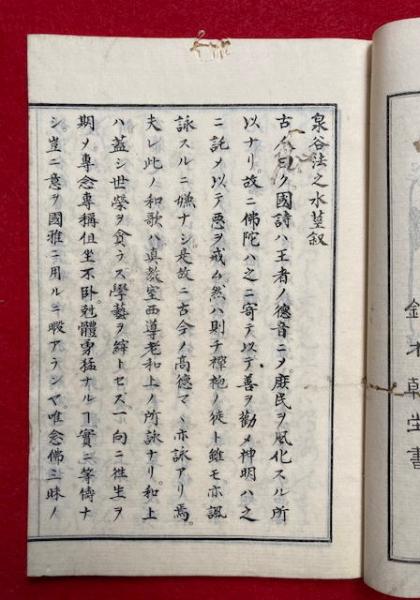 泉谷法之水莖叙
古人曰ク國詩ハ王者ノ德音ニメ庶民ヲ風化スル所
以ナリ故ニ佛陀ハ之ニ寄テ以テ善ヲ勸メ神明ハ之
ニ託メ以テ惡ヲ戒ム然ハ則チ禪袍ノ徒ト雖モ亦諷
詠スルニ嫌ナシ是故ニ古今ノ高德マヽ亦詠アリ焉
夫レ此ノ和歌ハ眞教室西導老和上ノ所詠ナリ和上
ハ蓋シ世榮ヲ貪ラス學藝ヲ縡トセス一向ニ徃生ヲ
期メ專念專稱但坐不臥兠體勇猛ナルヿ實ニ等倚ナ
シ豈ニ意ヲ國雅ニ用ルニ暇アランヤ唯念佛三昧ノ
乾生書